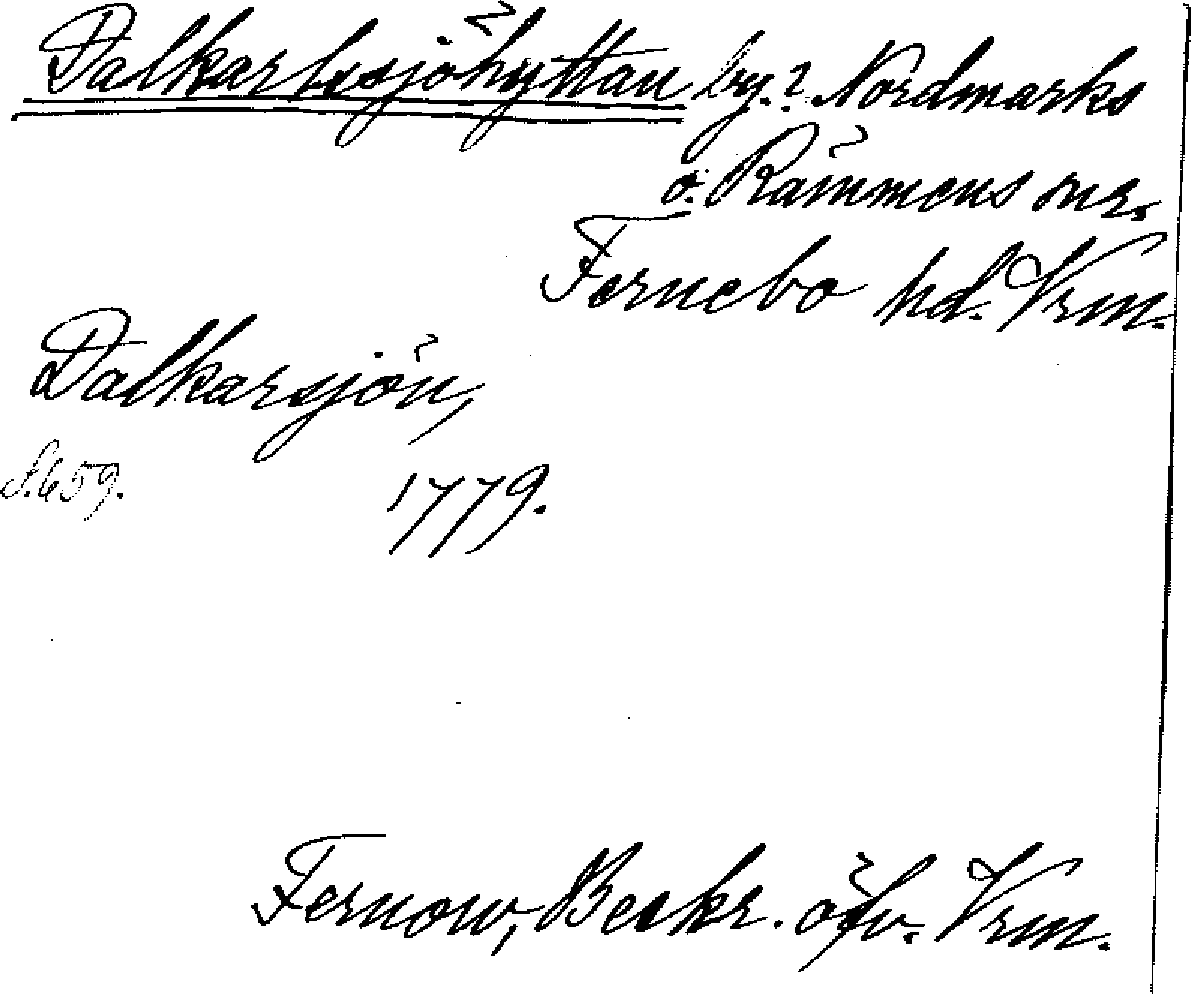 Dalkarlssjöhyttan by.? Nordmarks
o. Rämmens snr.
Fernebo hd. Vrm.
Dalkarsjön,
S. 659.
1779.
Fernow, Beskr. öfv. Vrm.